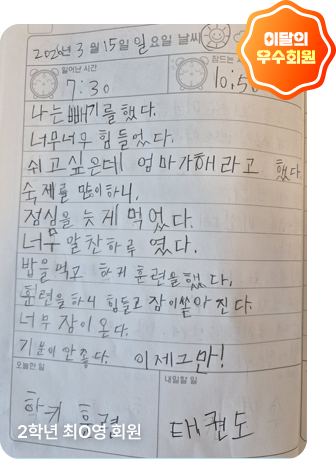 이달의
우수회원
2026년 3월 15일 일요일 날씨
일어난 시간
잠드는
7:30
10:50
나는 빼기를 했다.
너무너무 힘들었다.
쉬고싶은데 엄마가해라고 했다.
숙제를 많이하니,
점심을 늦게 먹었다.
너무 알찬하루 였다.
밥을먹고 하키 훈련을했다.
훈련을하니 힘들고 잠이쏟아진다.
너무 잠이온다.
기분이 안좋다. 이제그만!
오늘한 일
내일할 일
하키 훈련
태권도
2학년 최O영 회원